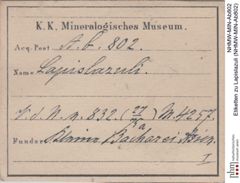 K. K. Mineralogisches Museum.
Acq. Post A. b. 802.
Name Lapislazuli.
V. d. N. m. 832. M 4257.
Fundort
I
NHMW-MIN-Ab802
Etiketten zu Lapislazuli (NHMW-MIN-Ab802)
nhm